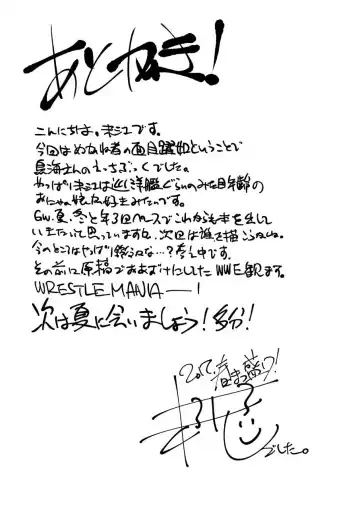 あとがき!
こんにちは。末江です。
今回はめがね者の面目躍如ということで
鳥海さんのえっちぶっくでした。
やっぱり末江は巡洋艦ぐらいのみな目年齢の
おにゃの娘が好きみたいです。
GW、夏、冬と年3回ペースでこれからも本を出して
いきたいって思っていますが、次回は誰を描こうかしら。
今のところはやっぱり綾波な…?考え中です。
その前に原稿でおあずけにしたWWE観ます。
WRESTLE MANIA――!
次は夏に会いましょう!多分!
2017.春まっ盛り!
でした。